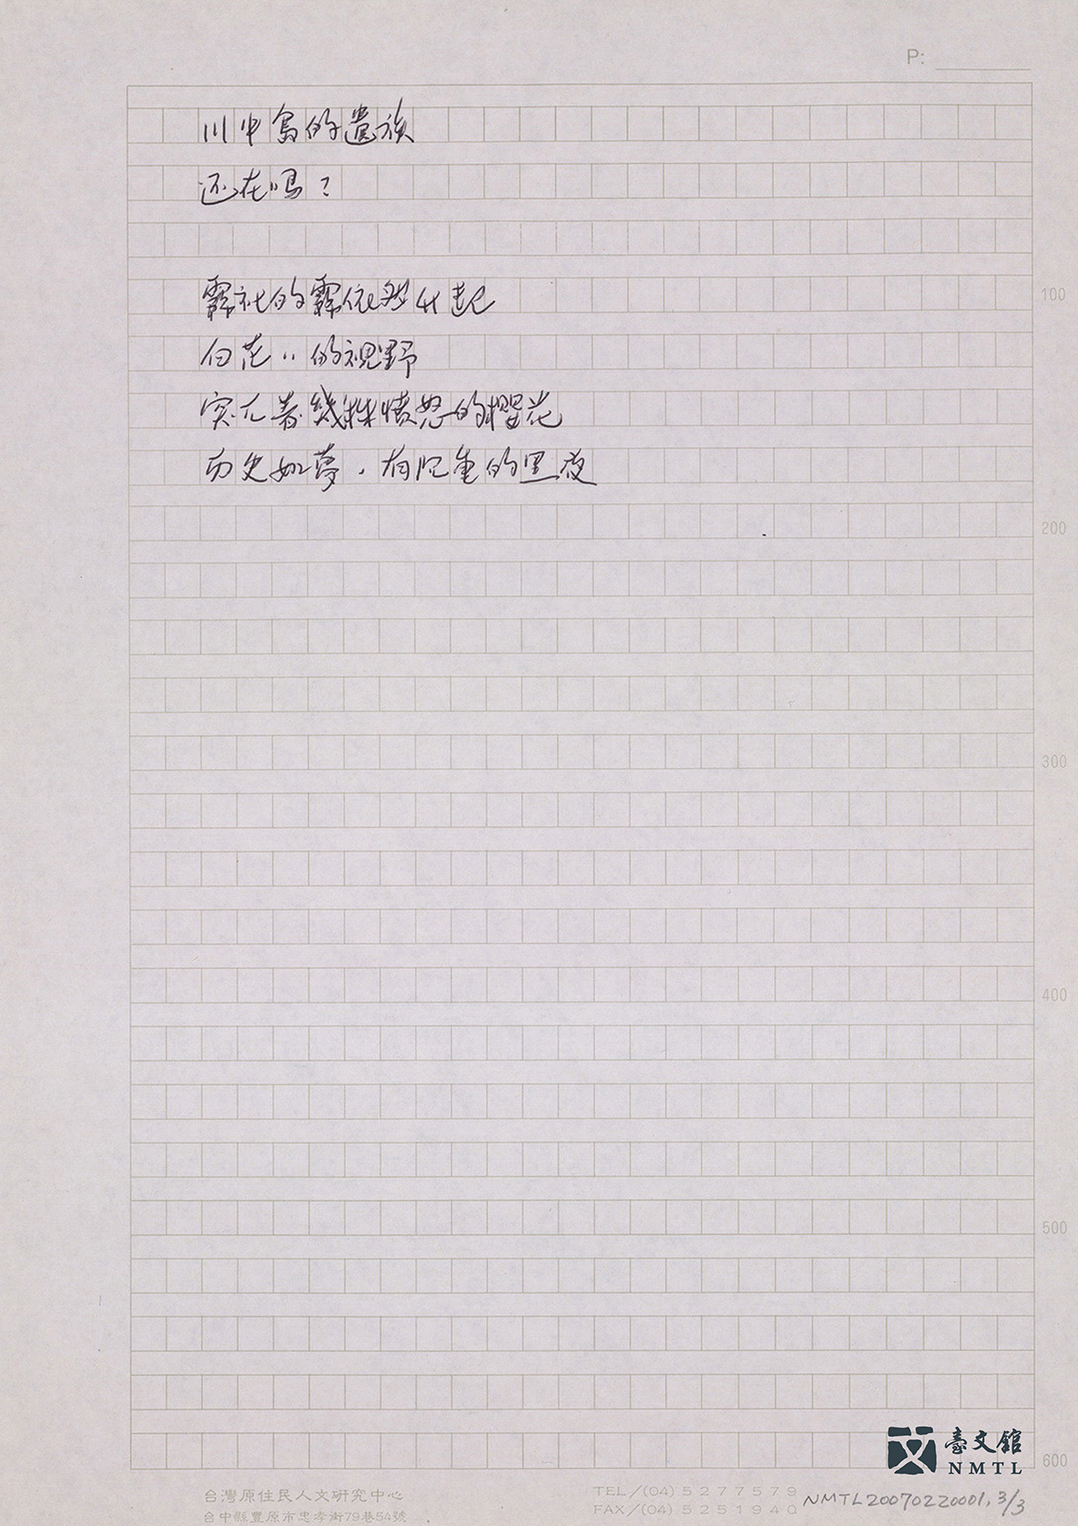 P:
川中島的遺族
还在嗎？
霧社的霧依然升起
白茫〃的視野
突兀著幾株憤怒的櫻花
历史如夢，有沉重的黑夜
100
200
300
400
500
600
臺文館
NMTL
台灣原住民人文研究中心
台中縣豐原市忠孝街79巷54號
TEL／(04) 5277579
FAX／(04) 5251940
NMTL20070220001, 3/3